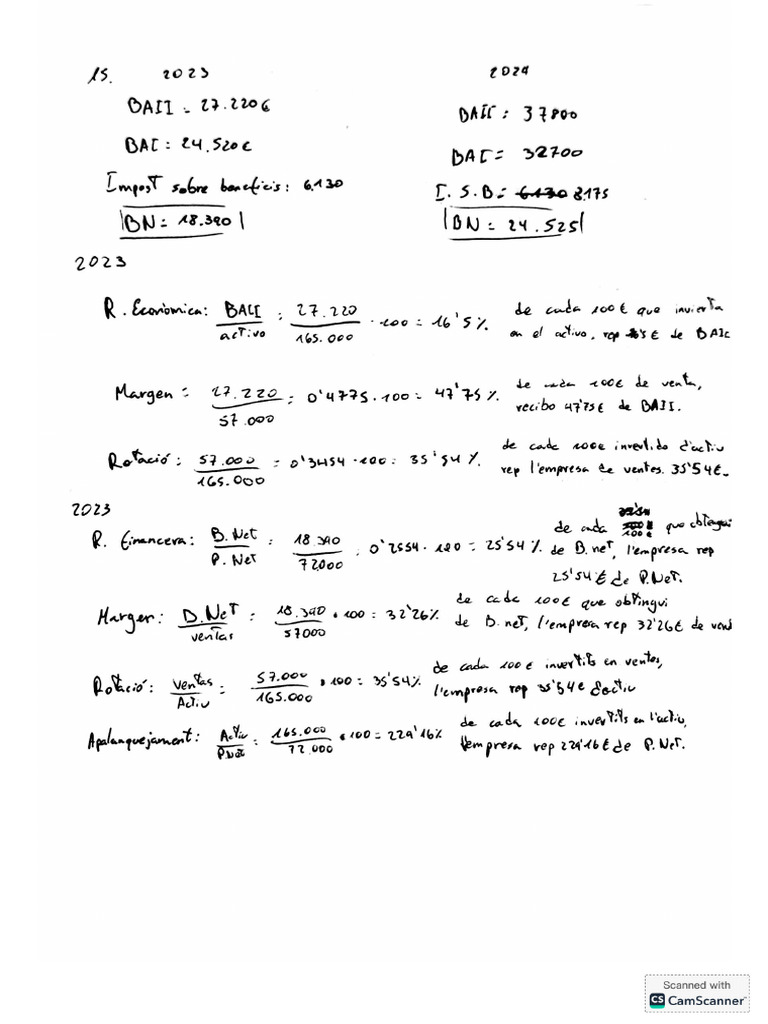 15. 2023 2024
BAII = 27.220€ BAII: 37800
BAI: 24.520€ BAI= 32700
Impost sobre beneficis: 6.130 I.S.B= 6.130 8.175
BN= 18.390 BN= 24.525
2023
R. Econòmica: BAII / activo = 27.220 / 165.000 · 100 = 16'5% de cada 100€ que invierta
en el activo, rep €  de BAII
Margen = 27.220 / 57.000 = 0'4775 · 100 = 47'75% de cada 100€ de venta,
recibo 47'75€ de BAII.
Rotació: 57.000 / 165.000 = 0'3454 · 100 = 35'54% de cada 100€ invertido d'activ
rep l'empresa de ventes. 35'54€.
2023
R. Financera: B.Net / P.Net = 18.390 / 72.000 = 0'2554 · 100 = 25'54% de cada 100€ que obtingui
de B.net, l'empresa rep
25'54€ de P.Net.
Margen: B.Net / ventas = 18.390 / 57000 · 100 = 32'26% de cada 100€ que obtingui
de B.net, l'empresa rep 32'26€ de vend
Rotació: Ventas / Activ = 57.000 / 165.000 · 100 = 35'54% de cada 100€ invertits en ventes,
l'empresa rep 35'54€ d'activ
Apalanquejament: Activ / P.Net = 165.000 / 72.000 · 100 = 229'16% de cada 100€ invertits en l'activ,
l'empresa rep 229'16€ de P.Net.
Scanned with
CS CamScanner